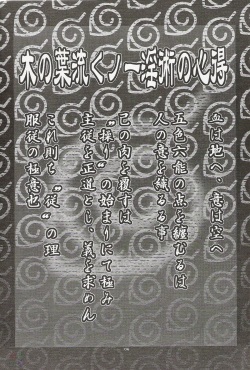 木の葉流くノ一淫術の心得
血は地へ、意は空へ
五色六能の点を纏むるは
人の意を織るる事
己の肉を覆すは
“操り”の始まりにて極み
主従を正道とし、義を求めん
これ則ち“従”の理
服従の極意也